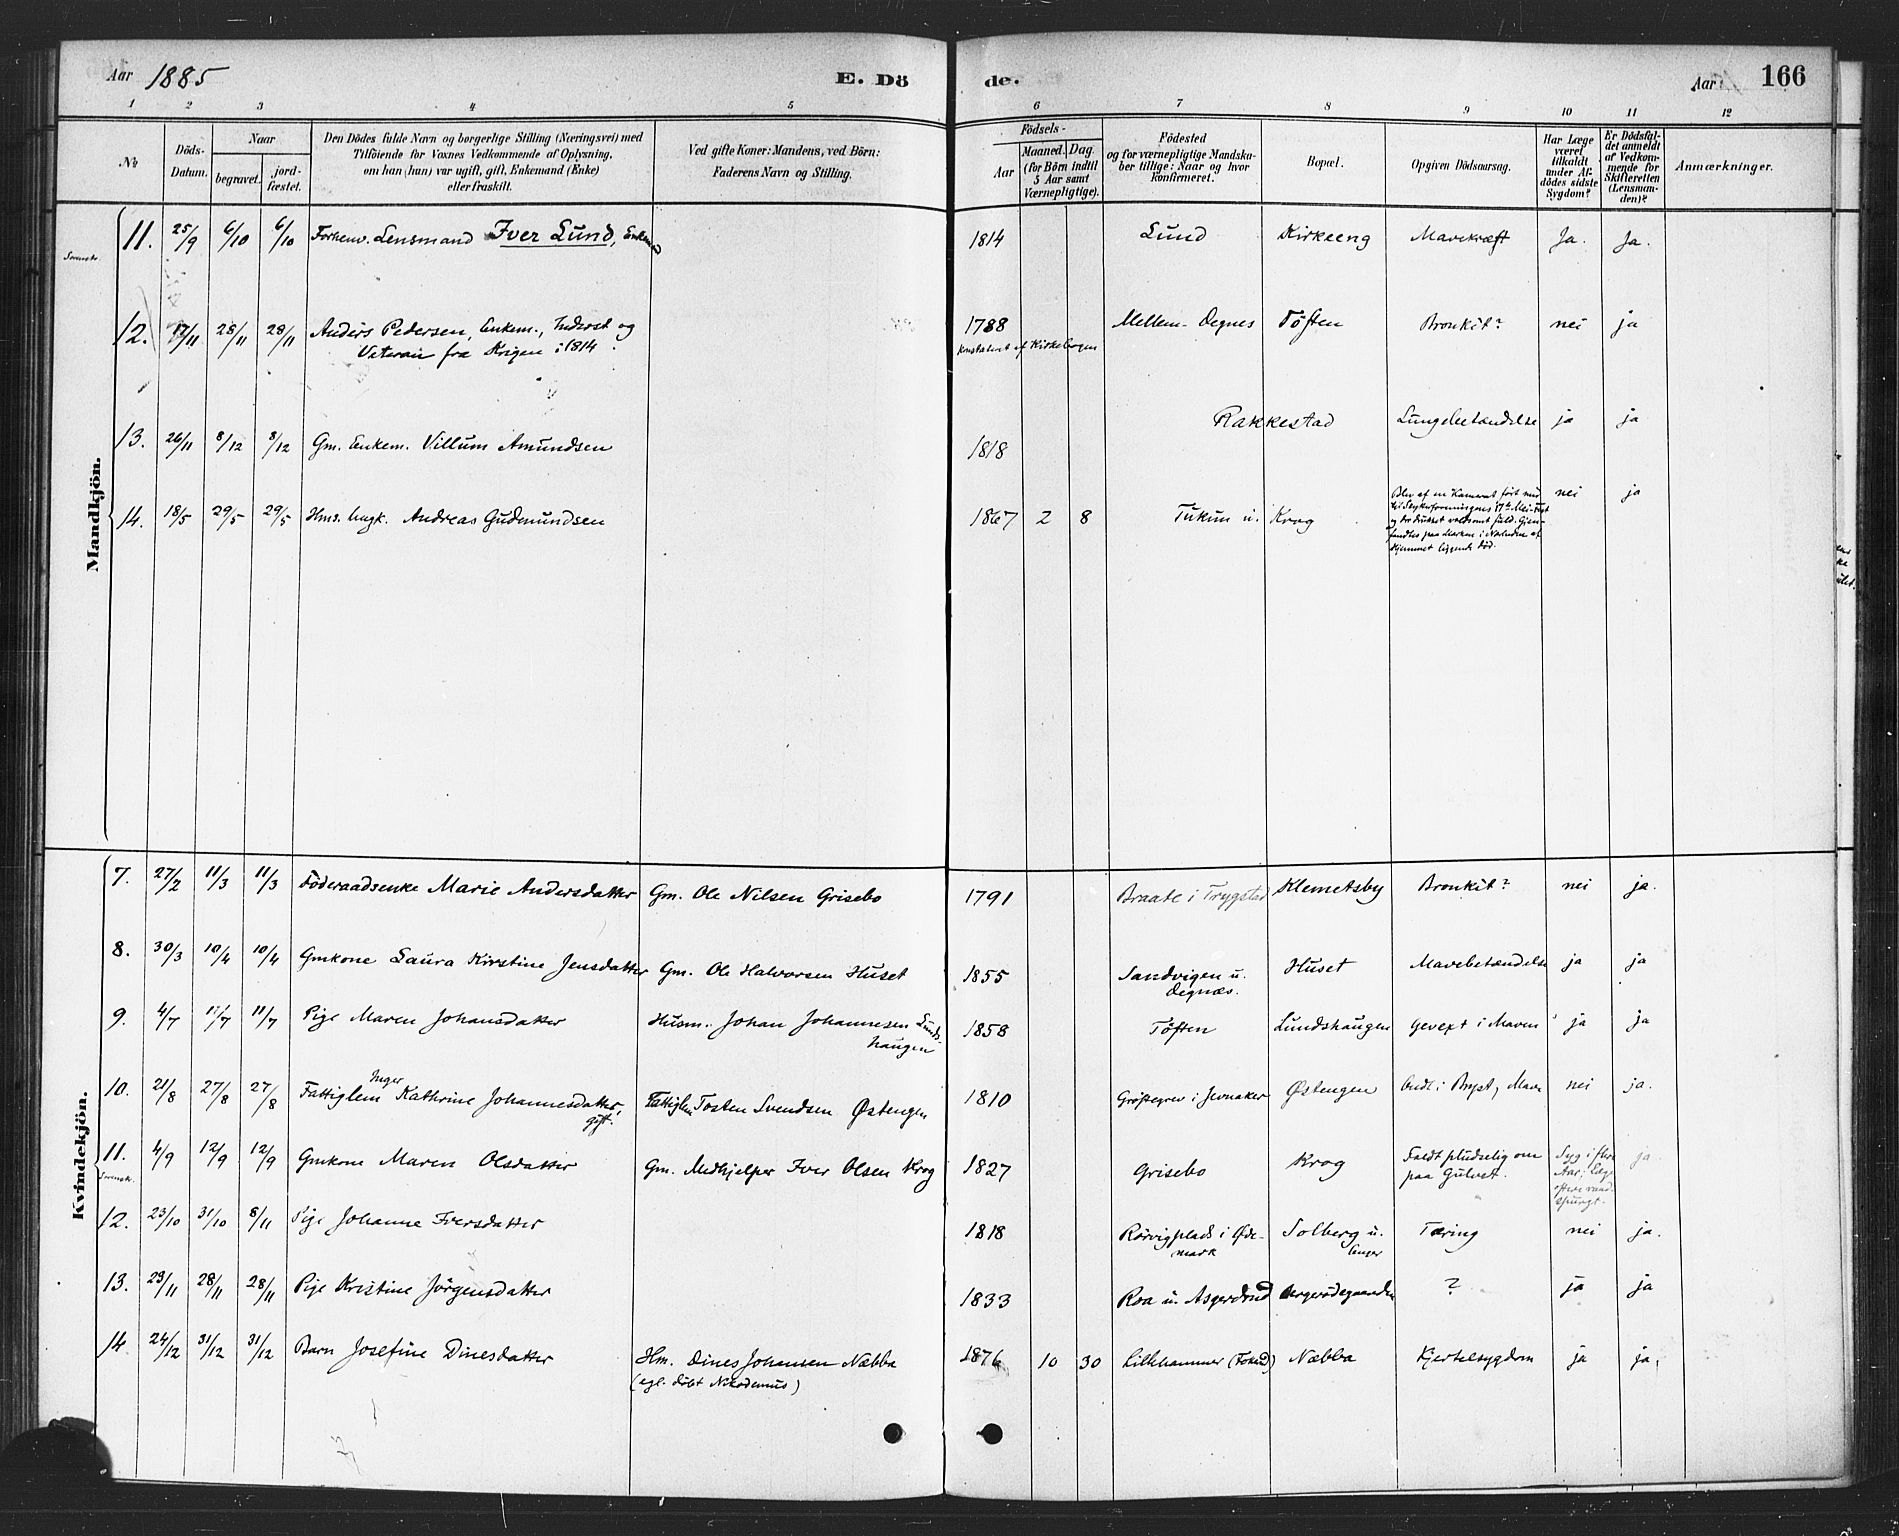 Aar 1885 E. Dö de. Aar 166
1 2 3 4 5 6 7 8 9 10 11 12
No
Döds-
Datum.
Naar
begravet.
jord-
fæstet.
Den Dödes fulde Navn og borgerlige Stilling (Næringsvei) med
Tilföiende for Voxnes Vedkommende af Oplysning,
om han (hun) var ugift, gift, Enkemand (Enke)
eller fraskilt.
Ved gifte Koner: Mandens, ved Börn:
Faderens Navn og Stilling.
Födsels-
Aar
Maaned. Dag.
(for Börn indtil
5 Aar samt
Værnepligtige).
Födested
og for værnepligtige Mandska-
ber tillige: Naar og hvor
konfirmeret.
Bopæl.
Opgiven Dödsaarsag.
Har Læge
været
tilkaldt
under Af-
dödes sidste
Sygdom?
Er Dödsfal-
det anmeldt
af Vedkom-
mende for
Skifteretten
(Lensman-
den)?
Anmærkninger.
Mandkjön.
11. 25/9 6/10 6/10 Forhenv. Lensmand Iver Lund, Enkem 1814 Lund Kirkeeng Mavekræft Ja. Ja.
12. 17/11 28/11 28/11 Anders Pedersen, Enkem., Inderst og 1788 Mellem-Degnes Töften Bronkit? nei ja
Veteran fra Krigen i 1814. konstateret af Kirkebogen
13. 26/11 8/12 8/12 Gm. Enkem. Villum Amundsen 1818 Rakkestad Lungebetændelse ja ja
14. 18/5 29/5 29/5 Hms. Ungk. Andreas Gudmundsen 1867 2 8 Tukun u. Krog nei ja
Blev af en Kamerat fört med
til Skytterforeningens 17de Mai-Fest
og der drukket voldsomt fuld. Gjen-
fandtes paa Marken i Nærheden af
Hjemmet liggende död.
Kvindekjön.
7. 27/2 11/3 11/3 Föderaadsenke Marie Andersdatter Gm. Ole Nilsen Grisebo 1791 Braate i Trygstad Klemetsby Bronkit? nei ja.
8. 30/3 10/4 10/4 Gmkone Laura Kirstine Jensdatter Gm. Ole Halvorsen Huset 1855 Sandvigen u. Huset Mavebetændelse ja ja
Degnæs.
9. 4/7 11/7 11/7 Pige Maren Johansdatter Husm. Johan Johannesen Lunds- 1858 Töften Lundshaugen Gevext i Maven ja ja
haugen
10. 21/8 27/8 27/8 Fattiglem Inger Kathrine Johannesdatter, Fattiglem Tosten Svendsen Østengen 1810 i Jevnaker Østengen Ondt i Bryst, Mave nei ja.
gift.
11. 4/9 12/9 12/9 Gmkone Maren Olsdatter Gm. Medhjelper Iver Olsen Krog 1827 Grisebo Krog Faldt pludselig om Syg i flere ja
paa Gulvet. Aar, Læge
oftere raad-
spurgt.
12. 23/10 31/10 8/11 Pige Johanne Iversdatter 1818 Rörvigplads i Øde- Solberg u. Tæring nei ja.
mark
13. 23/11 28/11 28/11 Pige Kristine Jörgensdatter 1833 Roa u. ? ja ja
14 24/12 31/12 31/12 Barn Josefine Dinesdatter Hm. Dines Johansen Næbba 1876 10 30 Lillehammer Næbba Kjertelsygdom ja ja,
(egl. döbt Nikodemus)